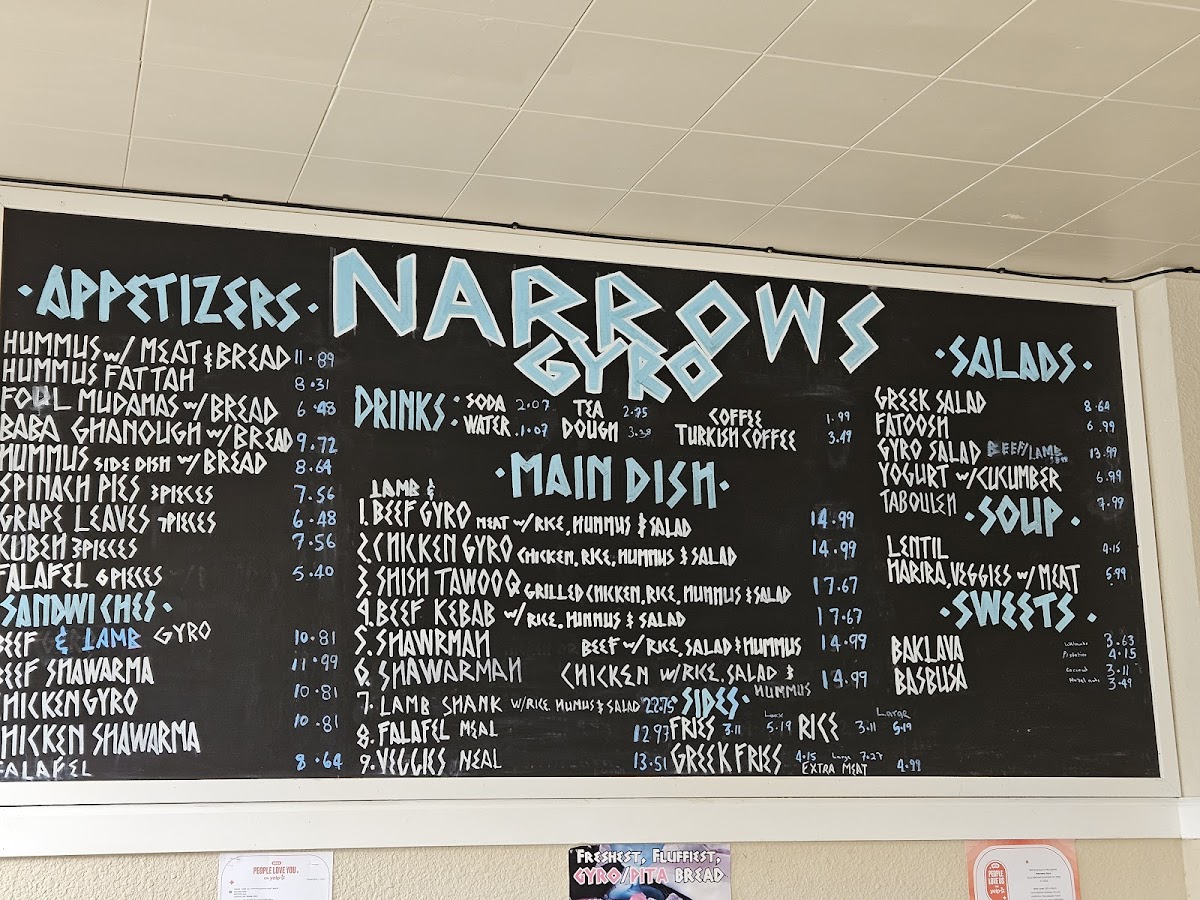 NARROWS
GYRO
·APPETIZERS·
HUMMUS w/ MEAT & BREAD 11.89
HUMMUS FATTAH 8.31
FOUL MUDAMAS w/ BREAD 6.48
BABA GHANOUGH w/ BREAD 9.72
HUMMUS SIDE DISH w/ BREAD 8.64
SPINACH PIES 3PIECES 7.56
GRAPE LEAVES 7PIECES 6.48
KUBEH 3PIECES 7.56
FALAFEL 6PIECES 5.40
SANDWICHES·
BEEF & LAMB GYRO 10.81
BEEF SHAWARMA 11.99
CHICKEN GYRO 10.81
CHICKEN SHAWARMA 10.81
FALAFEL 8.64
DRINKS: SODA 2.07 TEA 2.75 COFFEE 1.99
WATER .1.07 DOUGH 3.38 TURKISH COFFEE 3.49
·MAIN DISH·
LAMB &
1. BEEF GYRO MEAT w/ RICE, HUMMUS & SALAD 14.99
2. CHICKEN GYRO CHICKEN, RICE, HUMMUS & SALAD 14.99
3. SHISH TAWOOQ GRILLED CHICKEN, RICE, HUMMUS & SALAD 17.67
4. BEEF KEBAB w/ RICE, HUMMUS & SALAD 17.67
5. SHAWRMAH BEEF w/ RICE, SALAD & HUMMUS 14.99
6. SHAWARMAH CHICKEN W/ RICE, SALAD & HUMMUS 14.99
7. LAMB SHANK W/ RICE HUMUS & SALAD 22.75
8. FALAFEL MEAL 12.97
9. VEGGIES MEAL 13.51
SIDES·
FRIES 3.11 5.19 RICE 3.11 Large 5.19
GREEK FRIES 4.15 Large 7.27
EXTRA MEAT 4.99
·SALADS·
GREEK SALAD 8.64
FATOOSH 6.99
GYRO SALAD BEEF/LAMB 13.99
YOGURT w/ CUCUMBER 6.99
TABOULEH 7.99
·SOUP·
LENTIL 4.15
HARIRA, VEGGIES w/ MEAT 5.99
·SWEETS·
BAKLAVA Walnuts 3.63
Pistachio 4.15
BASBUSA Coconut 3.11
Hazelnuts 3.49
PEOPLE LOVE YOU
on yelp
FRESHEST, FLUFFIEST,
GYRO/PITA BREAD
PEOPLE
LOVE US
on yelp